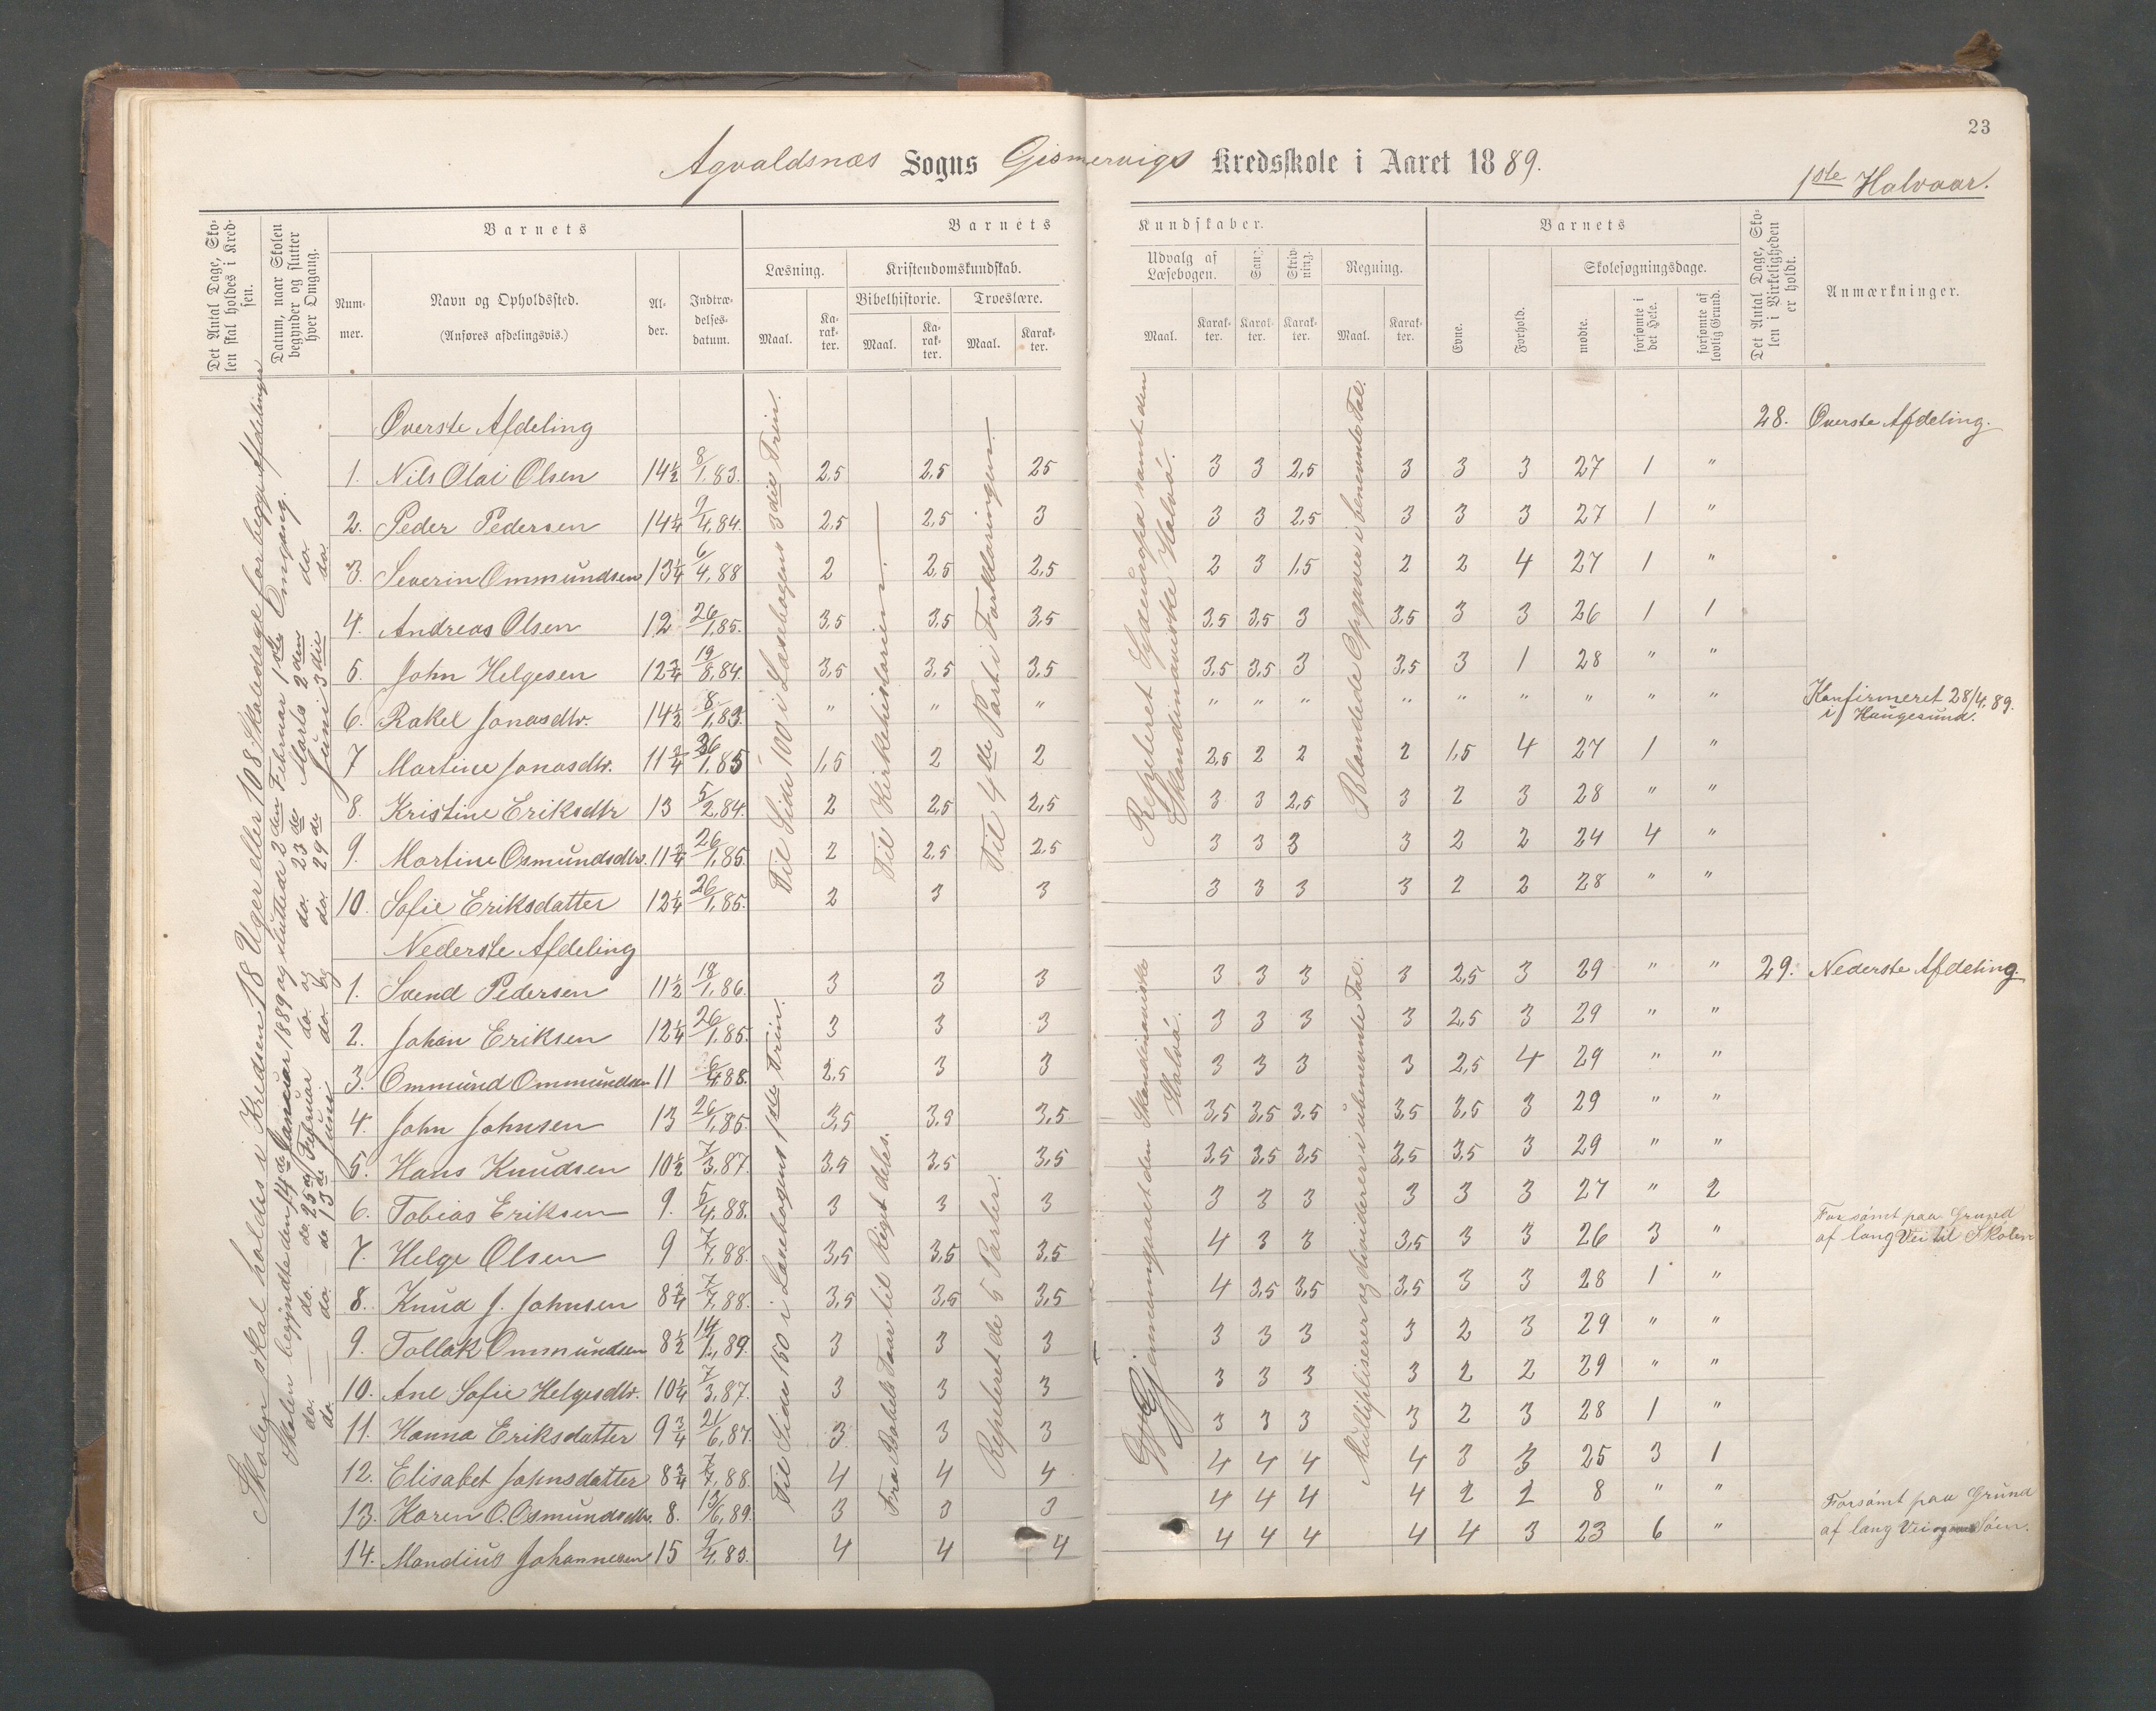 23
Agvaldsnæs Sogns Gismervigs Kredsskole i Aaret 1889.
1ste Halvaar.
Det Antal Dage, Skolen skal holdes i Kredsen.
Datum, naar Skolen begynder og slutter hver Omgang.
Barnets
Barnets Kundskaber.
Barnets
Det Antal Dage, Skolen i Virkeligheden er holdt.
Anmærkninger.
Nummer.
Navn og Opholdssted.
(Anføres afdelingsvis.)
Alder.
Indtrædelsesdatum.
Læsning.
Kristendomskundskab.
Bibelhistorie.
Troeslære.
Udvalg af Læsebogen.
Sang.
Skrivning.
Regning.
Evne.
Forhold.
Skolesøgningsdage.
Maal. Karakter. Maal. Karakter. Maal. Karakter.
Maal. Karakter. Karakter. Karakter. Maal. Karakter.
mødte. forsømte i det Hele. forsømte af lovlig Grund.
Skolen skal holdes i Kredsen 18 Uger eller 108 Skoledage for begge Afdelinger
Skolen begyndte den 14de Januar 1889 og sluttede 2den Februar 1ste Omgang.
do. do. 25de Februar do. og do. 23de Marts 2den do.
do. do. de 13de Juni do. og do. 29de Juni 3die do.
Øverste Afdeling 28. Øverste Afdeling.
1. Nils Olai Olsen 14½ 8/1,83. 2,5 2,5 25 3 3 2,5 3 3 3 27 1 "
2. Peder Pedersen 14¼ 9/4,84. 2,5 2,5 3 3 3 2,5 3 3 3 27 1 "
3. Severin Ommundsen 13¼ 6/4,88 2 2,5 2,5 2 3 1,5 2 2 4 27 1 "
4. Andreas Olsen 12 26/1,85. 3,5 3,5 3,5 3,5 3,5 3 3,5 3 3 26 1 1
5. John Helgesen 12¾ 19/8,84. 3,5 3,5 3,5 3,5 3,5 3 3,5 3 1 28 " "
6. Rakel Jonasdtr. 14½ 8/1,83. " " " " " " " " " " " " Konfirmeret 28/4.89.
i Haugesund.
7 Martine Jonasdtr. 11¾ 26/1,85 1,5 2 2 2,5 2 2 2 1,5 4 27 1 "
8. Kristine Eriksdtr 13 5/2,84. 2 2,5 2,5 3 3 2,5 3 2 3 28 " "
9. Martine Osmundsdtr. 11¾ 26/1,85. 2 2,5 2,5 3 3 3 3 2 2 24 4 "
10. Sofie Eriksdatter 12¼ 26/1,85. 2 3 3 3 3 3 3 2 2 28 " "
Til Side 100 i Læsebogens 3die Trin.
Til Kirkehistorien
Til 4de Part i Forklaringen
Repeteret Sydeuropa samt den
Skandinaviske Halvø.
Blandede Opgaver i benevnte Tal.
Nederste Afdeling
1. Svend Pedersen 11½ 18/1,86. 3 3 3 3 3 3 3 2,5 3 29 " " 29. Nederste Afdeling.
2. Johan Eriksen 12¼ 26/1,85. 3 3 3 3 3 3 3 2,5 3 29 " "
3. Ommund Ommundsen 11 6/4,88. 2,5 3 3 3 3 3 3 2,5 4 29 " "
4. John Johnsen 13 26/1,85. 3,5 3,5 3,5 3,5 3,5 3,5 3,5 3,5 3 29 " "
5. Hans Knudsen 10½ 7/3,87. 3,5 3,5 3,5 3,5 3,5 3,5 3,5 3,5 3 29 " "
6. Tobias Eriksen 9. 5/4,88. 3 3 3 3 3 3 3 3 3 27 " 2
7. Helge Olsen 9 7/7,88. 3,5 3,5 3,5 4 3 3 3,5 3 3 26 3 " Forsømt paa Grund
af lang Vei til Skolen
8. Knud J. Johnsen 8¾ 7/7,88. 3,5 3,5 3,5 4 3,5 3,5 3,5 3 3 28 1 "
9. Tollak Ommundsen 8½ 14/1,89. 3 3 3 3 3 3 3 2 3 29 " "
10. Ane Sofie Helgesdtr. 10¼ 7/3,87. 3 3 3 3 3 3 3 2 2 29 " "
11. Hanna Eriksdatter 9¾ 21/6,87. 3 3 3 3 3 3 3 2 3 28 1 "
12. Elisabet Johnsdatter 8¾ 7/7,88. 4 4 4 4 4 4 4 3 3 25 3 1
13. Karen O. Osmundsdtr. 8. 13/6,89. 3 3 3 4 4 4 4 2 2 8 " "
14. Mandius Johannesen 15 9/4,83. 4 4 4 4 4 4 4 4 3 23 6 " Forsømt paa Grund
af lang Vei
Til Side 150 i Læsebogens 1ste Trin.
Fra Babels Taarn til Riget deles.
Repeteret de 5 Parter.
Gjennemgaaet den Skandinaviske
Halvø.
Multipliserer og dividerer i ubenevnte Tal.